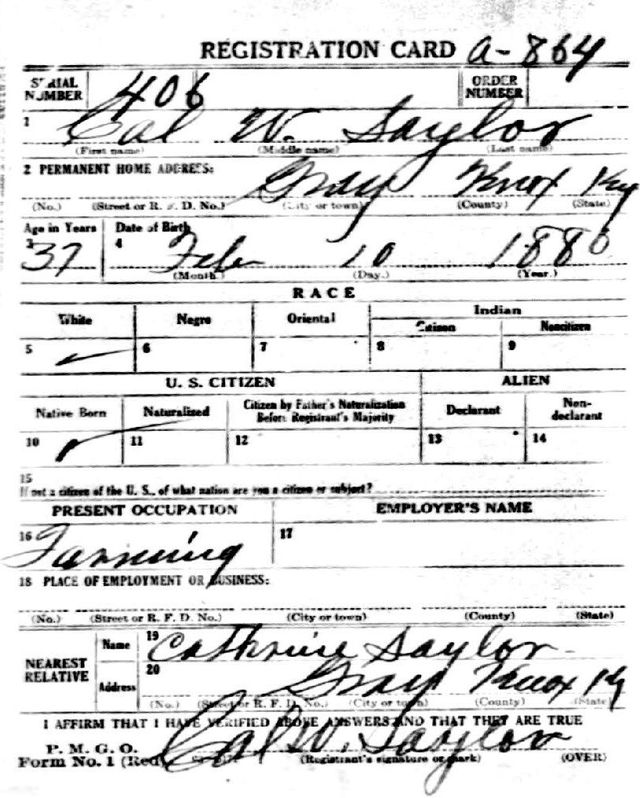 REGISTRATION CARD a-864
SERIAL NUMBER 406 ORDER NUMBER
1 Cal W. Saylor
(First name) (Middle name) (Last name)
2 PERMANENT HOME ADDRESS: Gray Knox Ky
(No.) (Street or R. F. D. No.) (City or town) (County) (State)
Age in Years Date of Birth
3 37 4 Feb 10 1880
(Month.) (Day.) (Year.)
RACE
White Negro Oriental Indian
Citizen Noncitizen
5 6 7 8 9
U. S. CITIZEN ALIEN
Native Born Naturalized Citizen by Father's Naturalization Before Registrant's Majority Declarant Non-declarant
10 11 12 13 14
15
If not a citizen of the U. S., of what nation are you a citizen or subject?
PRESENT OCCUPATION EMPLOYER'S NAME
16 Farming 17
18 PLACE OF EMPLOYMENT OR BUSINESS:
(No.) (Street or R. F. D. No.) (City or town) (County) (State)
NEAREST RELATIVE Name 19 Cathrine Saylor
Address 20 Gray Knox Ky
(No.) (Street or R. F. D. No.) (City or town) (County) (State)
I AFFIRM THAT I HAVE VERIFIED ABOVE ANSWERS AND THAT THEY ARE TRUE
P. M. G. O.
Form No. 1 (Red) Cal W. Saylor
(Registrant's signature or mark) (OVER)